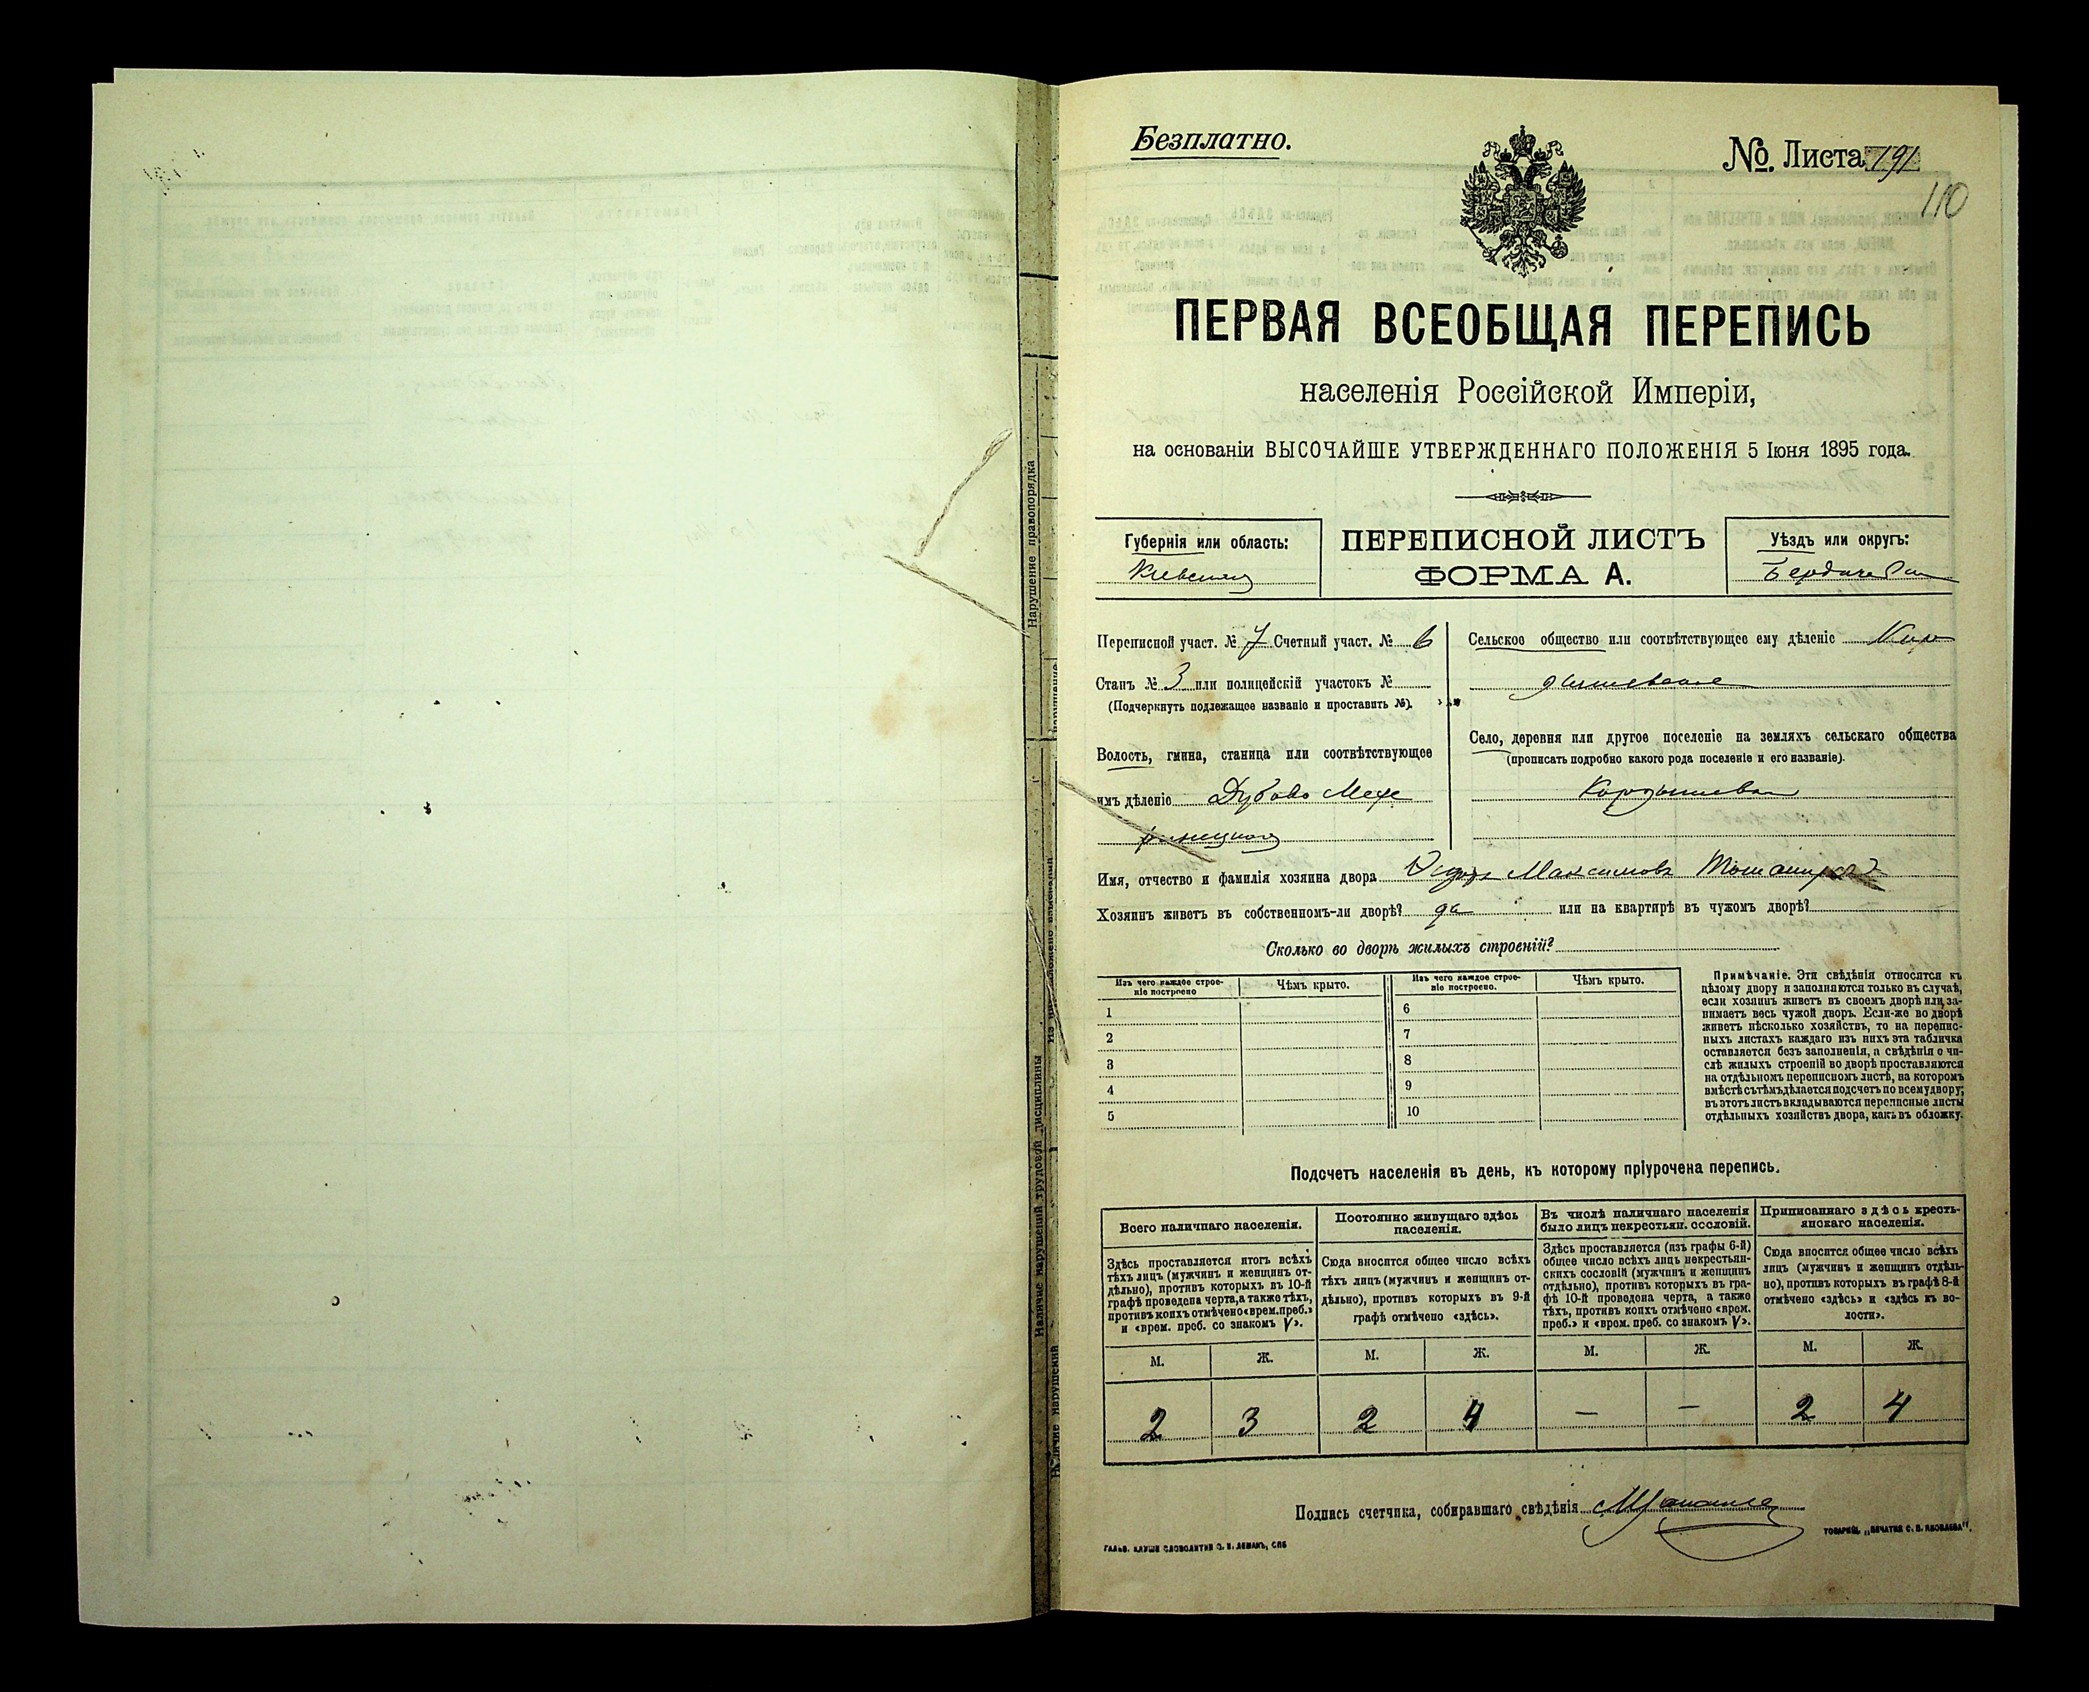 Безплатно.
№ Листа 191
110
ПЕРВАЯ ВСЕОБЩАЯ ПЕРЕПИСЬ
населенія Россійской Имперіи,
на основаніи ВЫСОЧАЙШЕ УТВЕРЖДЕННАГО ПОЛОЖЕНІЯ 5 Іюня 1895 года.
Губернія или область:
Кіевская
ПЕРЕПИСНОЙ ЛИСТЪ
ФОРМА А.
Уѣздъ или округъ:
Бердичевскій
Переписной участ. № 7 Счетный участ. № 6
Станъ № 3 или полицейскій участокъ №
(Подчеркнуть подлежащее названіе и проставить №).
Волость, гмина, станица или соотвѣтствующее
имъ дѣленіе Дубово Меже
Сельское общество или соотвѣтствующее ему дѣленіе Кор
дышевское
Село, деревня или другое поселеніе на земляхъ сельскаго общества
(прописать подробно какого рода поселеніе и его названіе).
Кордышевка
Имя, отчество и фамилія хозяина двора Максимовъ
Хозяинъ живетъ въ собственномъ-ли дворѣ? да или на квартирѣ въ чужомъ дворѣ?
Сколько во дворѣ жилыхъ строеній?
Изъ чего каждое строе-
ніе построено
Чѣмъ крыто.
Изъ чего каждое строе-
ніе построено.
Чѣмъ крыто.
1
2
3
4
5
6
7
8
9
10
Примѣчаніе. Эти свѣдѣнія относятся къ
цѣлому двору и заполняются только въ случаѣ,
если хозяинъ живетъ въ своемъ дворѣ или за-
нимаетъ весь чужой дворъ. Если-же во дворѣ
живетъ нѣсколько хозяйствъ, то на перепис-
ныхъ листахъ каждаго изъ нихъ эта табличка
оставляется безъ заполненія, а свѣдѣнія о чи-
слѣ жилыхъ строеній во дворѣ проставляются
на отдѣльномъ переписномъ листѣ, на которомъ
вмѣстѣ съ тѣмъ дѣлается подсчетъ по всему двору;
въ этотъ листъ вкладываются переписные листы
отдѣльныхъ хозяйствъ двора, какъ въ обложку.
Подсчетъ населенія въ день, къ которому пріурочена перепись.
Всего наличнаго населенія.
Здѣсь проставляется итогъ всѣхъ
тѣхъ лицъ (мужчинъ и женщинъ от-
дѣльно), противъ которыхъ въ 10-й
графѣ проведена черта, а также тѣхъ,
противъ коихъ отмѣчено «врем. преб.»
и «врем. преб. со знакомъ V».
Постоянно живущаго здѣсь
населенія.
Сюда вносится общее число всѣхъ
тѣхъ лицъ (мужчинъ и женщинъ от-
дѣльно), противъ которыхъ въ 9-й
графѣ отмѣчено «здѣсь».
Въ числѣ наличнаго населенія
было лицъ некрестьян. сословій.
Здѣсь проставляется (изъ графы 6-й)
общее число всѣхъ лицъ некрестьян-
скихъ сословій (мужчинъ и женщинъ
отдѣльно), противъ которыхъ въ гра-
фѣ 10-й проведена черта, а также
тѣхъ, противъ коихъ отмѣчено «врем.
преб.» и «врем. преб. со знакомъ V».
Приписаннаго здѣсь кресть-
янскаго населенія.
Сюда вносится общее число всѣхъ
лицъ (мужчинъ и женщинъ отдѣль-
но), противъ которыхъ въ графѣ 8-й
отмѣчено «здѣсь» и «здѣсь въ во-
лости».
М. Ж. М. Ж. М. Ж. М. Ж.
2 3 2 4 — — 2 4
Подпись счетчика, собиравшаго свѣдѣнія
ГАЛЬВ. КЛИШЕ СЛОВОЛИТНИ О. И. ЛЕМАНЪ, СПБ
ТОВАРИЩ. „ПЕЧАТНЯ С. П. ЯКОВЛЕВА".
Нарушение правопорядка
Наличие нарушений трудовой дисциплины